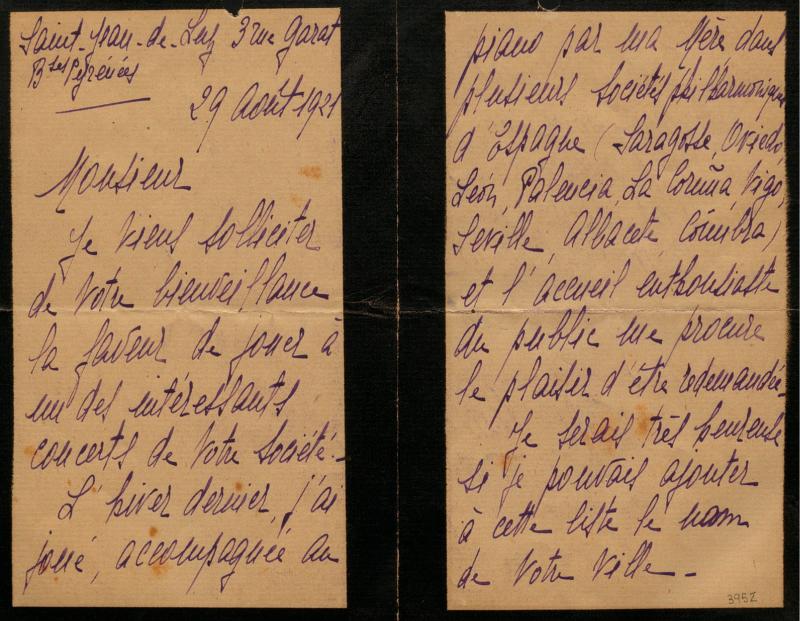 Saint-Jean-de-Luz 3 rue Garat
Bses Pyrénées
29 Août 1921
Monsieur
Je viens solliciter
de Votre bienveillance
la faveur de jouer à
un des intéressants
concerts de Votre Société.-
L'hiver dernier, j'ai
joué, accompagnée au
piano par ma Mère dans
plusieurs Sociétés philharmoniques
d'Espagne (Saragosse, Oviedo,
León, Palencia, La Coruña, Vigo,
Séville, Albacete, Coïmbra)
et l'accueil enthousiaste
du public me procure
le plaisir d'être redemandée.-
Je serais très heureuse
si je pouvais ajouter
à cette liste le nom
de Votre Ville.-
3952